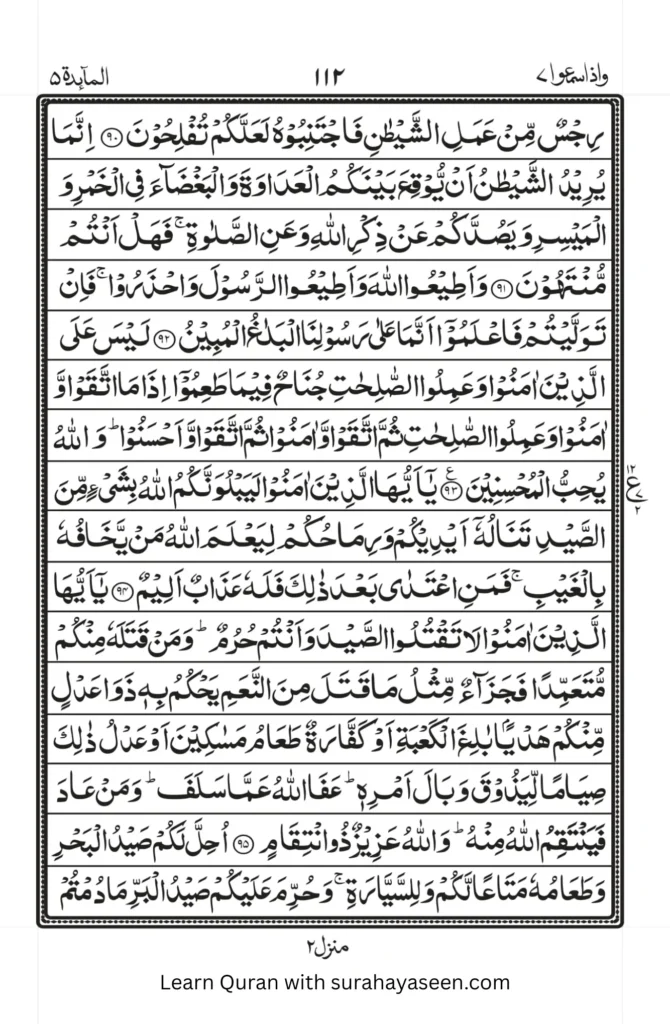 واذاسمعوا۷ ۱۱۲ المآىِٕدة۵
رِجْسٌ مِّنْ عَمَلِ الشَّیْطٰنِ فَاجْتَنِبُوْهُ لَعَلَّكُمْ تُفْلِحُوْنَ ۝۹۰ اِنَّمَا
یُرِیْدُ الشَّیْطٰنُ اَنْ یُّوْقِعَ بَیْنَكُمُ الْعَدَاوَةَ وَالْبَغْضَآءَ فِی الْخَمْرِ وَ
الْمَیْسِرِ وَیَصُدَّكُمْ عَنْ ذِكْرِ اللّٰهِ وَعَنِ الصَّلٰوةِ ۚ فَهَلْ اَنْتُمْ
مُّنْتَهُوْنَ ۝۹۱ وَاَطِیْعُوا اللّٰهَ وَاَطِیْعُوا الرَّسُوْلَ وَاحْذَرُوْا ۚ فَاِنْ
تَوَلَّیْتُمْ فَاعْلَمُوْۤا اَنَّمَا عَلٰی رَسُوْلِنَا الْبَلٰغُ الْمُبِیْنُ ۝۹۲ لَیْسَ عَلَی
الَّذِیْنَ اٰمَنُوْا وَعَمِلُوا الصّٰلِحٰتِ جُنَاحٌ فِیْمَا طَعِمُوْۤا اِذَا مَا اتَّقَوْا وَّ
اٰمَنُوْا وَعَمِلُوا الصّٰلِحٰتِ ثُمَّ اتَّقَوْا وَّاٰمَنُوْا ثُمَّ اتَّقَوْا وَّاَحْسَنُوْا ؕ وَاللّٰهُ
یُحِبُّ الْمُحْسِنِیْنَ ۝۹۳ ع یٰۤاَیُّهَا الَّذِیْنَ اٰمَنُوْا لَیَبْلُوَنَّكُمُ اللّٰهُ بِشَیْءٍ مِّنَ
۱۲ ع ۷ ۲
الصَّیْدِ تَنَالُهٗۤ اَیْدِیْكُمْ وَرِمَاحُكُمْ لِیَعْلَمَ اللّٰهُ مَنْ یَّخَافُهٗ
بِالْغَیْبِ ۚ فَمَنِ اعْتَدٰی بَعْدَ ذٰلِكَ فَلَهٗ عَذَابٌ اَلِیْمٌ ۝۹۴ یٰۤاَیُّهَا
الَّذِیْنَ اٰمَنُوْا لَا تَقْتُلُوا الصَّیْدَ وَاَنْتُمْ حُرُمٌ ؕ وَمَنْ قَتَلَهٗ مِنْكُمْ
مُّتَعَمِّدًا فَجَزَآءٌ مِّثْلُ مَا قَتَلَ مِنَ النَّعَمِ یَحْكُمُ بِهٖ ذَوَا عَدْلٍ
مِّنْكُمْ هَدْیًۢا بٰلِغَ الْكَعْبَةِ اَوْ كَفَّارَةٌ طَعَامُ مَسٰكِیْنَ اَوْ عَدْلُ ذٰلِكَ
صِیَامًا لِّیَذُوْقَ وَبَالَ اَمْرِهٖ ؕ عَفَا اللّٰهُ عَمَّا سَلَفَ ؕ وَمَنْ عَادَ
فَیَنْتَقِمُ اللّٰهُ مِنْهُ ؕ وَاللّٰهُ عَزِیْزٌ ذُو انْتِقَامٍ ۝۹۵ اُحِلَّ لَكُمْ صَیْدُ الْبَحْرِ
وَطَعَامُهٗ مَتَاعًا لَّكُمْ وَلِلسَّیَّارَةِ ۚ وَحُرِّمَ عَلَیْكُمْ صَیْدُ الْبَرِّ مَا دُمْتُمْ
منزل۲
Learn Quran with surahayaseen.com